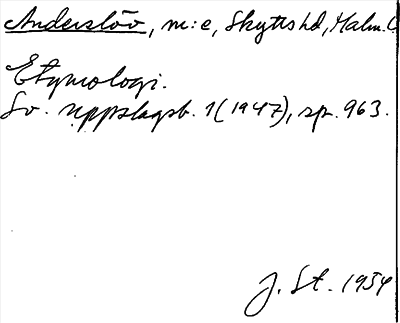 Anderslöv, m:e, Skytts hd, Malm. l.
Etymologi.
Sv. uppslagsb. 1 (1947), sp. 963.
J. St. 1954